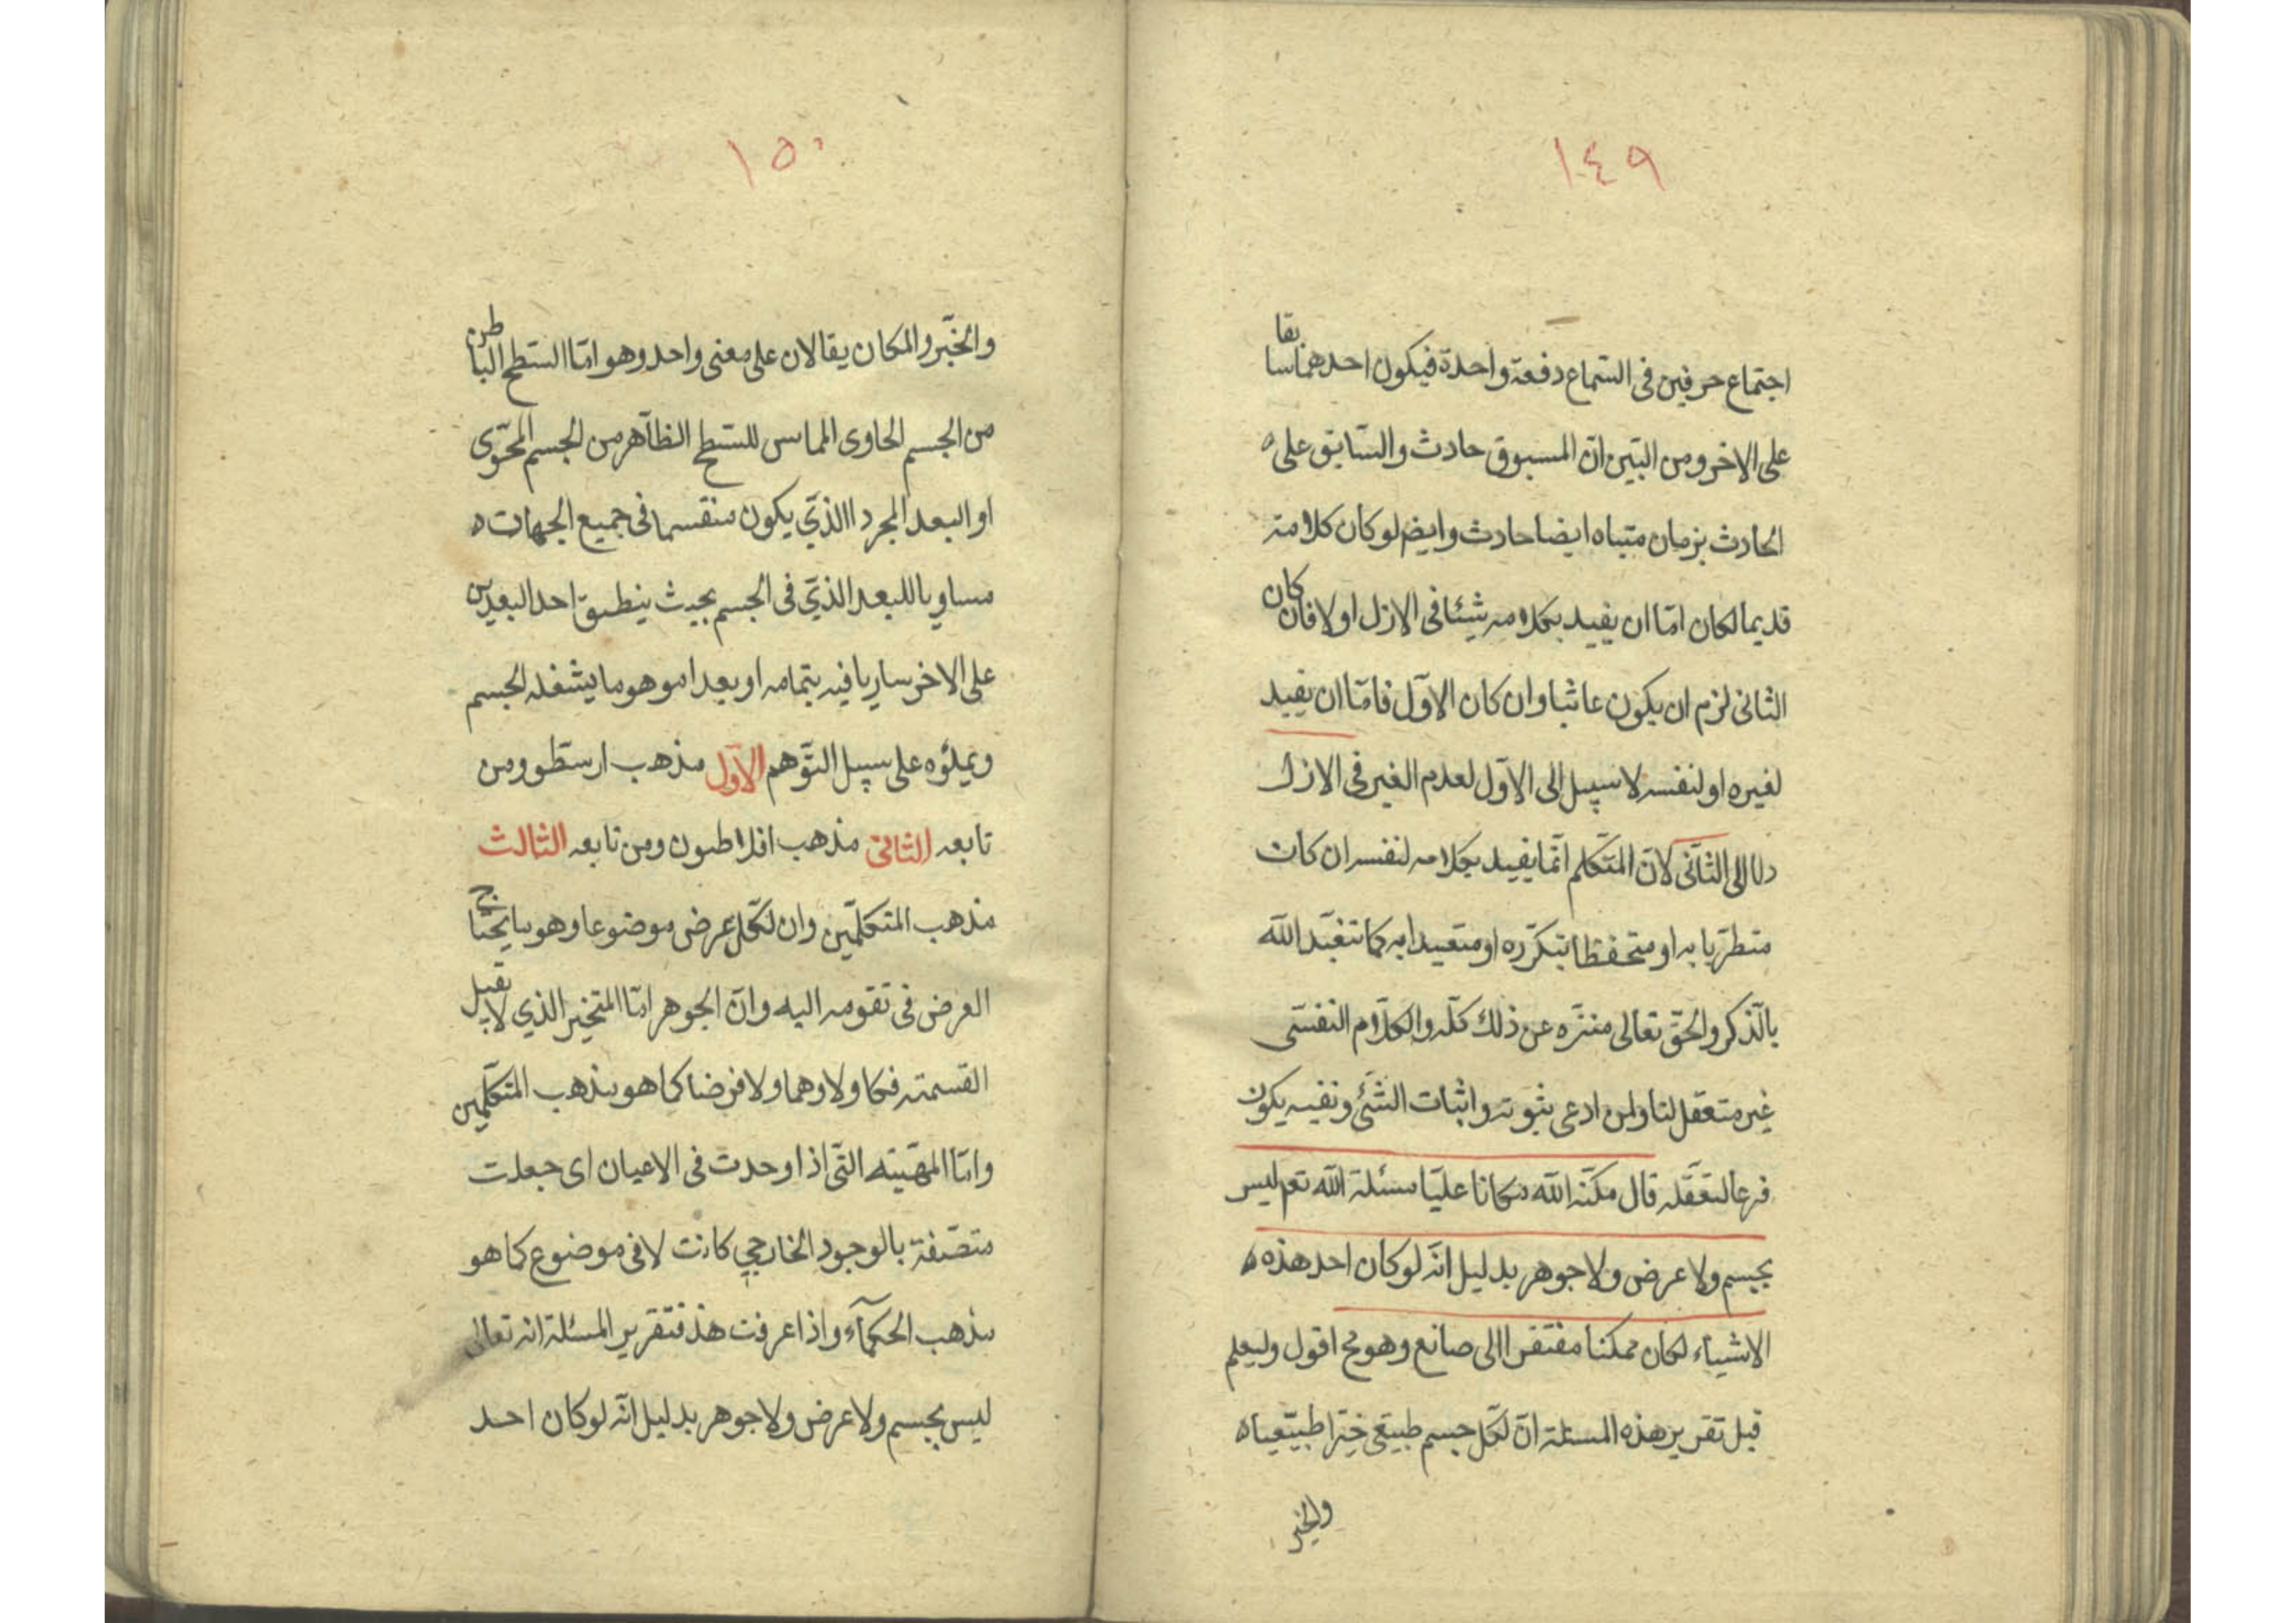 ١٤٩
اجتماع حرفين فى السّماع دفعة واحدة فيكون احدهما سابقا
على الاخر ومن البيّن انّ المسبوق حادث والسّابق على ه
الحادث بزمان متناه ايضا حادث وايضم لوكان كلامه
قديما لكان امّا ان يفيد بكلامه شيئا فى الازل اولا فان كان
الثانى لزم ان يكون عابثا وان كان الاوّل فامّا ان يفيد
لغيره او لنفسه لا سبيل الى الاوّل لعدم الغير فى الازل
ولا الى الثّانى لانّ المتكلّم انّما يفيد بكلامه لنفسه ان كان
متطرّبا به او متحفظا بتكرّره او متعبدا به كما تتعبّد اللّه
بالّذكر والحقّ تعالى منزّه عن ذلك كلّه والكلام النّفسّى
غير متعقل لنا ولمن ادعى ثبوته واثبات الشّئ ونفيه يكون
فرعا لتعقّله قال مكنّه اللّه مكانا عليّا مسئلة اللّه تعم ليس
بجسم ولا عرض ولا جوهر بدليل انّه لو كان احد هذه ه
الاشياء لكان ممكنا مفتقرا الى صانع وهو مح اقول وليعلم
قبل تقرير هذه المسئلة انّ لكّل جسم طبيعّى خيّرا طبيّعيا ه
والخيّر
١٥٠
والخيّر والمكان يقالان على معنى واحد وهو امّا السّطح الباطن
من الجسم الحاوى المماس للسّطح الظاّهر من الجسم المحوّى
او البعد المجرد االذّي يكون منقسما فى جميع الجهات ه
مساويا للبعد الذّي فى الجسم بحيث ينطبق احد البعدين
على الاخر ساريا فيه بتمامه او بعدا موهوما يشغله الجسم
ويملؤه على سبيل التّوهم الاّول مذهب ارسطو ومن
تابعه الثانى مذهب افلاطون ومن تابعه الثالث
مذهب المتكلّمين وان لكّل عرض موضوعا وهو ما يحتاج
العرض فى تقومه اليه وانّ الجوهر امّا المتخير الذي لا يقبل
القسمة فكا ولا وهما ولا فرضا كما هو مذهب المتكلّمين
وامّا المهيّته التّى اذا وحدت فى الاعيان اى جعلت
متصّفة بالوجود الخارجي كانت لا فى موضوع كما هو
مذهب الحكمآء واذا عرفت هذ فتقرير المسئلة انه تعالى
ليس بجسم ولا عرض ولا جوهر بدليل انّه لو كان احد